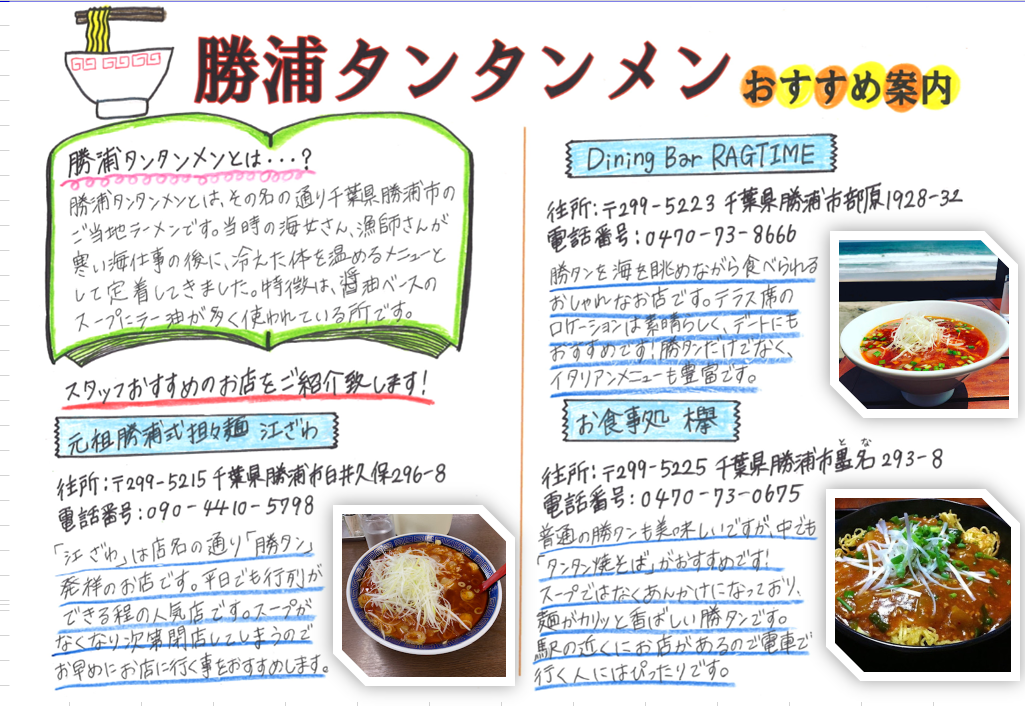 勝浦タンタンメン おすすめ案内
勝浦タンタンメンとは・・・?
勝浦タンタンメンとは、その名の通り千葉県勝浦市の
ご当地ラーメンです。当時の海女さん、漁師さんが
寒い海仕事の後に、冷えた体を温めるメニューと
して定着してきました。特徴は、醤油ベースの
スープにラー油が多く使われている所です。
スタッフおすすめのお店をご紹介致します!
元祖勝浦式担々麺 江ざわ
住所:〒299-5215 千葉県勝浦市白井久保296-8
電話番号:090-4410-5798
「江ざわ」は店名の通り「勝タン」
発祥のお店です。平日でも行列が
できる程の人気店です。スープが
なくなり次第閉店してしまうので
お早めにお店に行く事をおすすめします。
Dining Bar RAGTIME
住所:〒299-5223 千葉県勝浦市部原1928-32
電話番号:0470-73-8666
勝タンを海を眺めながら食べられる
おしゃれなお店です。テラス席の
ロケーションは素晴らしく、デートにも
おすすめです!勝タンだけでなく、
イタリアンメニューも豊富です。
お食事処 欅
住所:〒299-5225 千葉県勝浦市墨名 293-8
とな
電話番号:0470-73-0675
普通の勝タンも美味しいですが、中でも
「タンタン焼そば」がおすすめです!
スープではなくあんかけになっており、
麺がカリッと香ばしい勝タンです。
駅の近くにお店があるので電車で
行く人にはぴったりです。